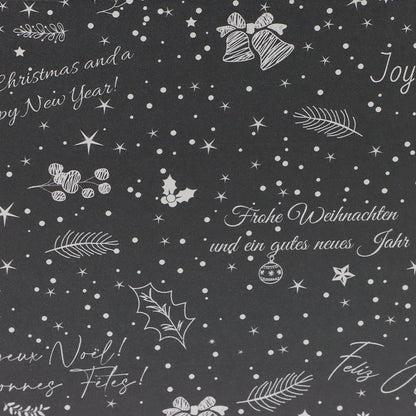 Joy
Christmas and a
py New Year!
Frohe Weihnachten
und ein gutes neues Jahr
eux Noël!
onnes Fêtes!
Feliz